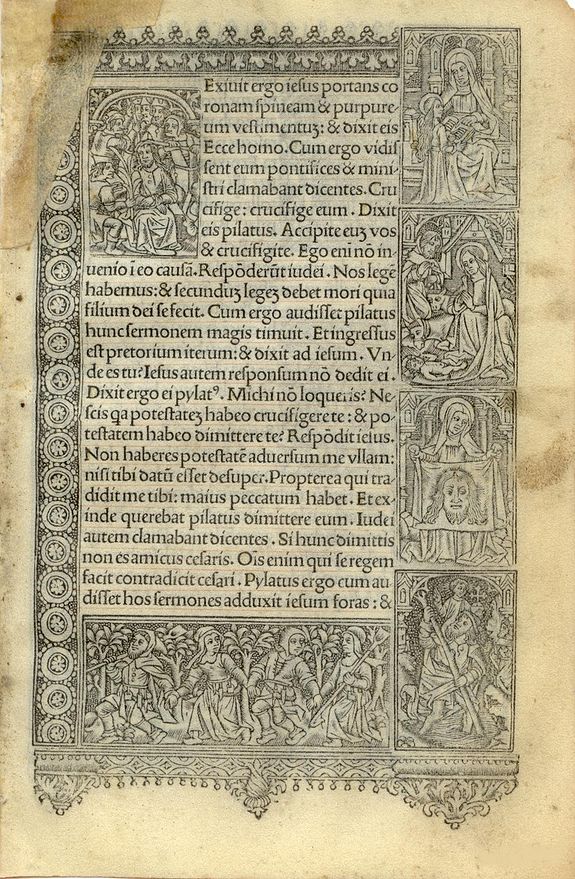 Exiuit ergo iesus portans co
ronam spineam & purpure-
um vestimentuʒ: & dixit eis
Ecce homo. Cum ergo vidis
sent eum pontifices & mini-
stri clamabant dicentes. Cru
cifige: crucifige eum. Dixit
eis pilatus. Accipite euʒ vos
& crucifigite. Ego eni nō in-
uenio ī eo causā. Respōderūt iudei. Nos legē
habemus: & secunduʒ legeʒ debet mori quia
filium dei se fecit. Cum ergo audisset pilatus
hunc sermonem magis timuit. Et ingressus
est pretorium iterum: & dixit ad iesum. Vn-
de es tu? Iesus autem responsum nō dedit ei.
Dixit ergo ei pylatꝰ. Michi nō loqueris? Ne-
scis qa potestateʒ habeo crucifigere te: & po-
testatem habeo dimittere te? Respōdit iesus.
Non haberes potestatē aduersum me vllam:
nisi tibi datū esset desuper. Propterea qui tra
didit me tibi: maius peccatum habet. Et ex-
inde querebat pilatus dimittere eum. Iudei
autem clamabant dicentes. Si hunc dimittis
non es amicus cesaris. Oīs enim qui se regem
facit contradicit cesari. Pylatus ergo cum au
disset hos sermones adduxit iesum foras: &